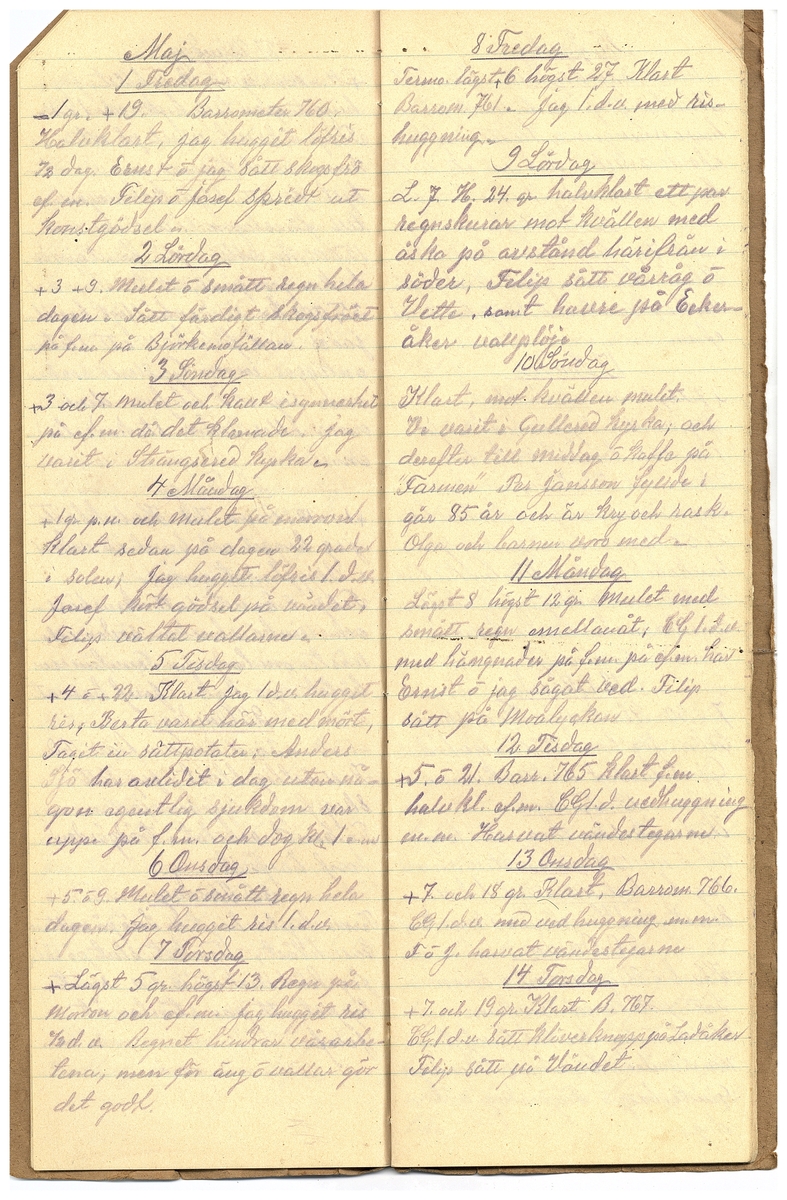 Maj
1 Fredag
-1 gr. +19. Barrometer 760.
Halvklart, jag huggit löfris
1/2 dag. Ernst o jag sått skogsfrö
ef.m. Filip o Josef spridt ut
konstgödsel.
2 Lördag
+3 +9. Mulet o smått regn hela
dagen. Sått färdigt skogsfröet
på f.m. på Björkemofällan.
3 Söndag
+3 och 7. Mulet och kallt isynnerhet
på ef.m. då det klarnade. jag
varit i Strängsered kyrka.
4 Måndag
+1 gr. p.n. och mulet på morron
klart sedan på dagen 22 grader
i solen; jag huggit löfris 1.d.v.
Josef kört gödsel på vändet,
Filip vältat vallarne.
5 Tisdag
+4 o +22. Klart jag 1 d.v. huggit
ris; Berta varit här med mört,
Tagit in sättpotater; Anders
Sjö har avlidit i dag utan nå-
gon egentlig sjukdom var
uppe på f.m. och dog kl. 1 e.m
6 Onsdag
+5 o 9. Mulet o smått regn hela
dagen. Jag huggit ris 1.d.v.
7 Torsdag
+ Lägst 5 gr. högst 13. Regn på
morron och ef.m. jag huggit ris
1/2 d.v. Regnet hindrar vårarbe-
tena; men för äng o vallar gör
det godt.
8 Fredag
Termo. lägst +6 högst 27. Klart
Barrom. 761. Jag 1.d.v. med ris-
huggning.
9 Lördag
L. 7. H. 24. gr halvklart ett par
regnskurar mot kvällen med
åska på avstånd härifrån i
söder, Filip sått vårråg o
Vette, samt havre på Ecker-
åker vallplöje
10 Söndag
Klart, mot kvällen mulet.
Vi varit i Gullered kyrka; och
derefter till middag o kaffe på
"Farmen" Per Jansson fyllde i
går 85 år och är kry och rask.
Olga och barnen voro med.
11 Måndag
Lägst 8 högst 12 gr. Mulet med
smått regn emellanåt; CG 1.d.v.
med hängnader på f.m. på ef.m. har
Ernst o jag sågat ved. Filip
sått på Moalyckan
12 Tisdag
+5. o 21. Barr. 765 Klart f.m.
halvkl. ef.m. CG 1.d. vedhuggning
m.m. Harvat vändestegarne
13 Onsdag
+7. och 18 gr. Klart, Barrom. 766.
CG 1.d.v. med ved huggning m.m.
F o J. harvat vändestegarne
14 Torsdag
+7. och 19 gr. Klart B. 767.
CG 1.d.v. sått klöverknopp på Ladåker
Filip sått på Vändet.